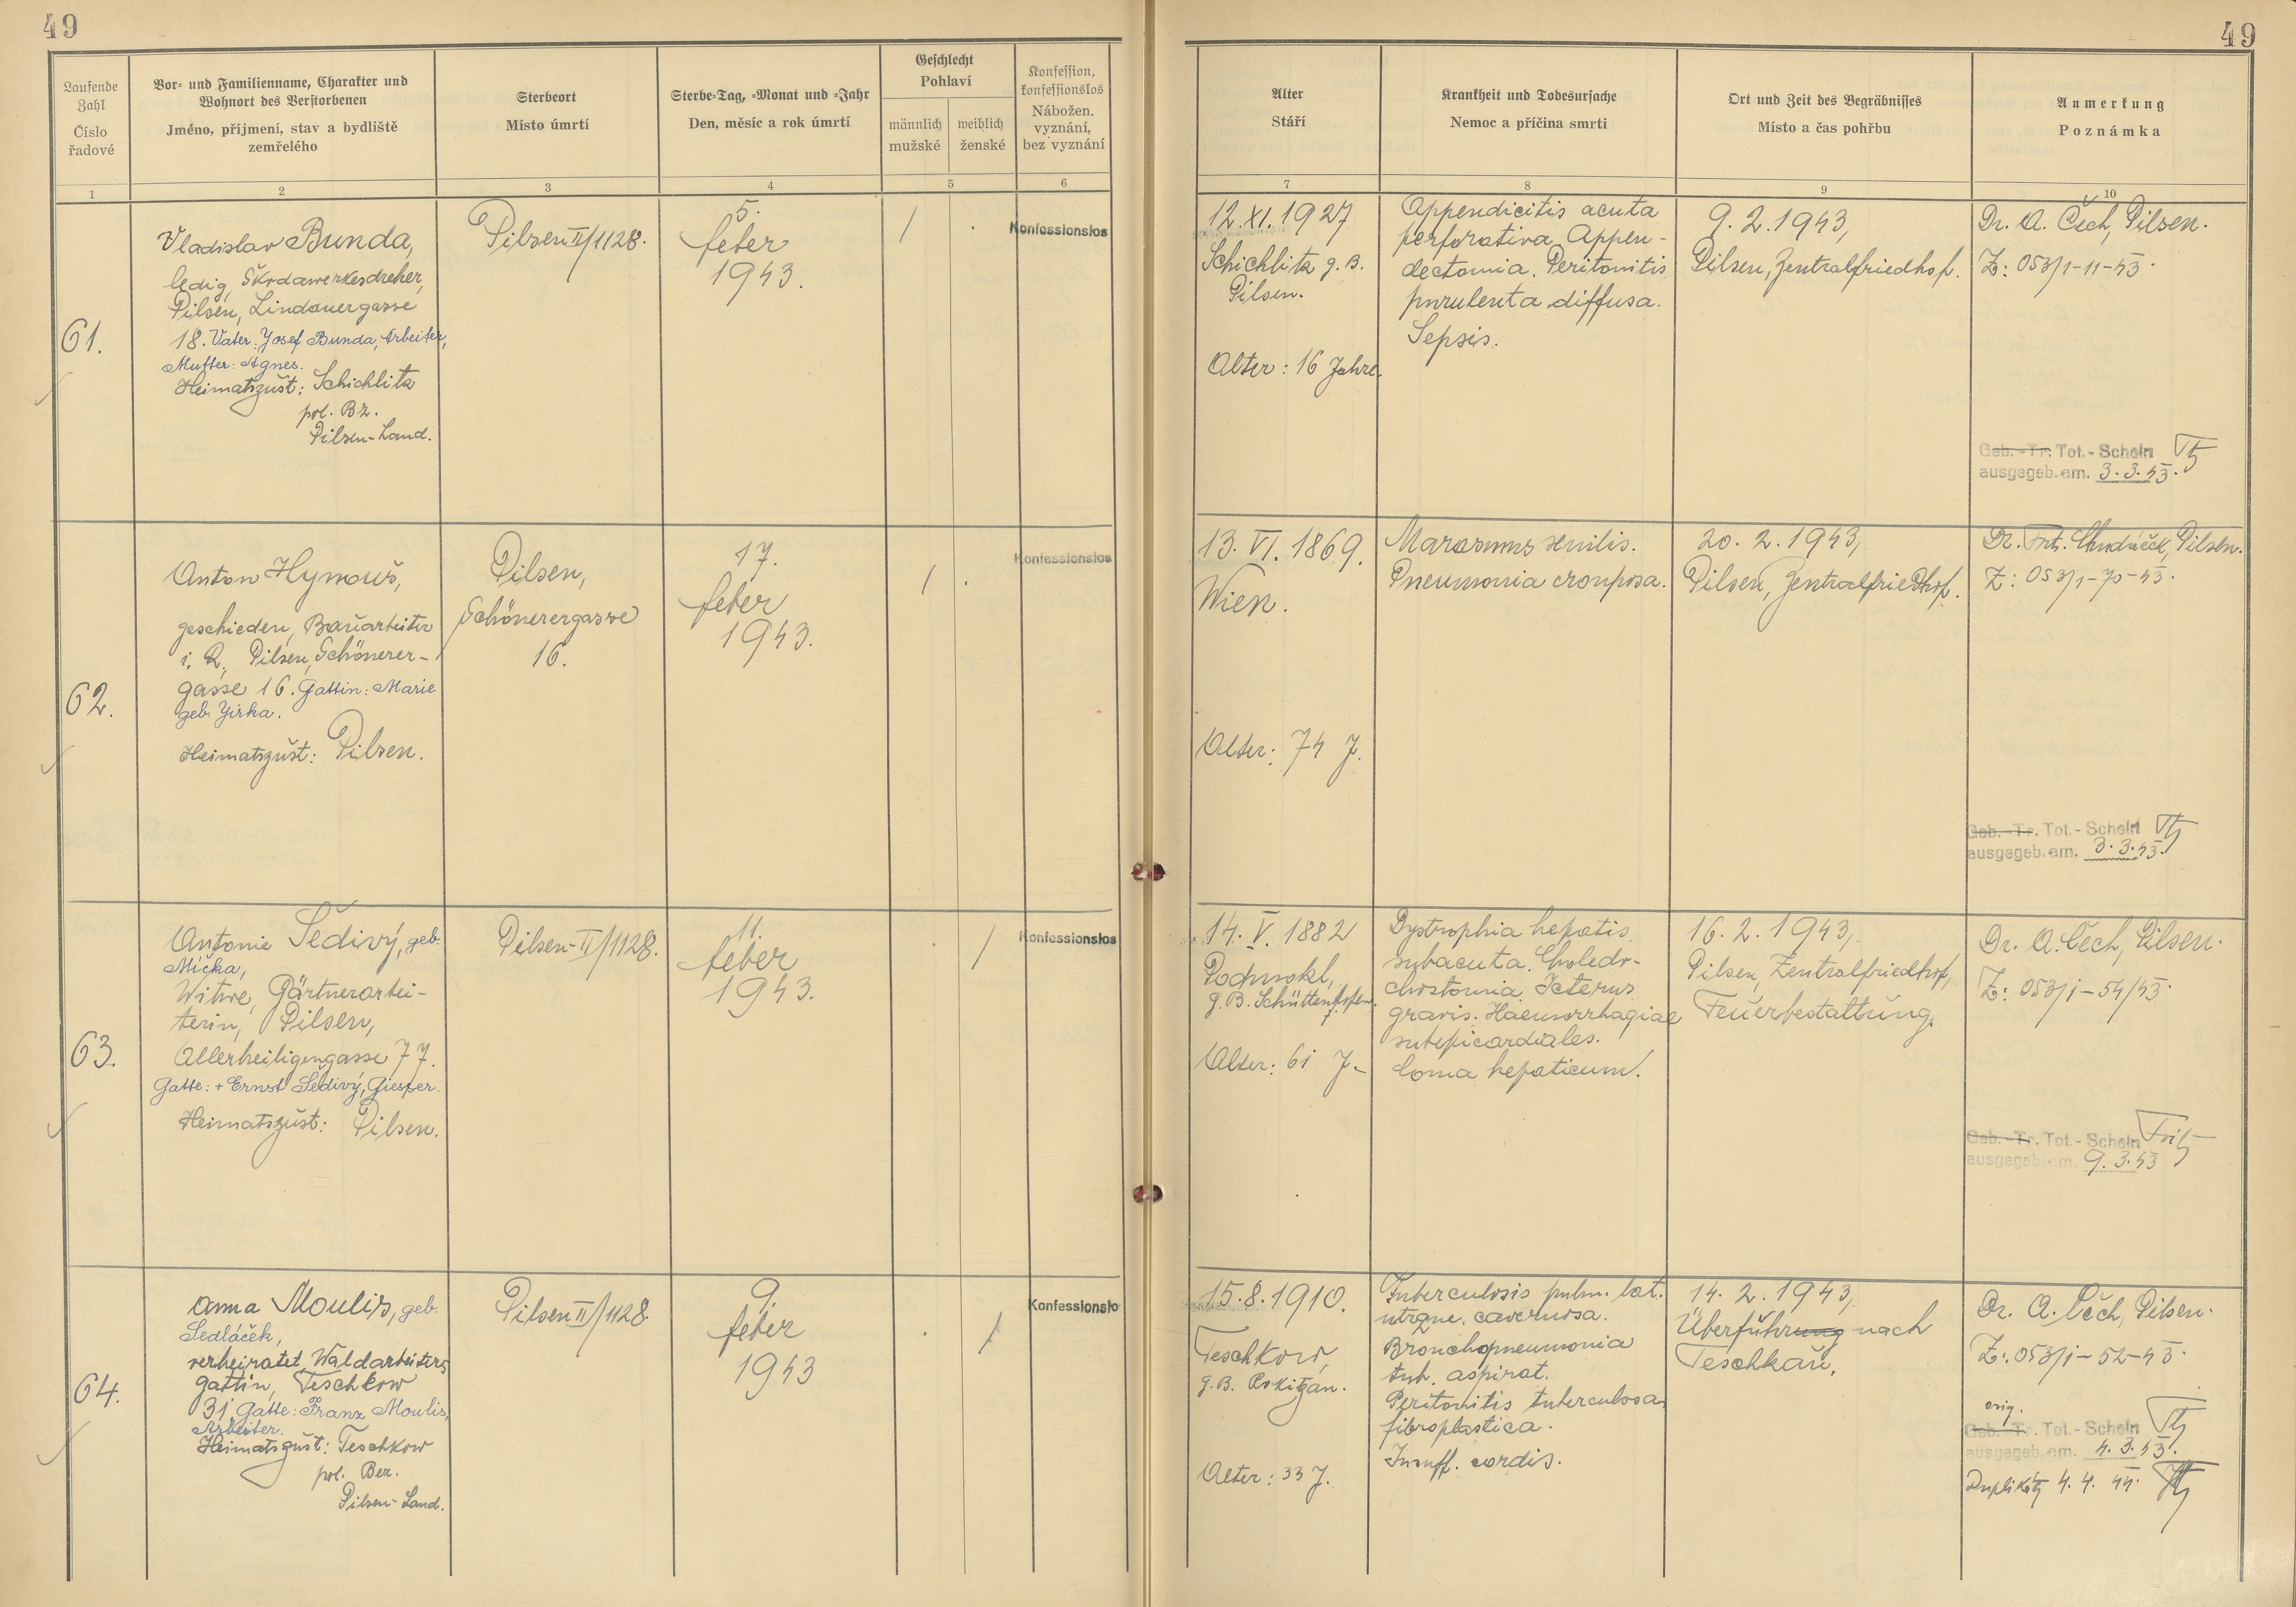 49
Laufende Zahl
Číslo řadové
1
Vor- und Familienname, Charakter und
Wohnort des Verstorbenen
Jméno, příjmení, stav a bydliště
zemřelého
2
Sterbeort
Místo úmrtí
3
Sterbe-Tag, -Monat und -Jahr
Den, měsíc a rok úmrtí
4
Geschlecht
Pohlaví
männlich
mužské
weiblich
ženské
5
Konfession,
konfessionslos
Nábožen.
vyznání,
bez vyznání
6
49
Alter
Stáří
7
Krankheit und Todesursache
Nemoc a příčina smrti
8
Ort und Zeit des Begräbnisses
Místo a čas pohřbu
9
Anmerkung
Poznámka
10
61.
Vladislav Bunda,
ledig, Škodawerkesdreher,
Pilsen, Lindauergasse
18. Vater: Josef Bunda, Arbeiter,
Mutter: Agnes.
Heimatszust: Schichlitz
pol. Bz.
Pilsen-Land.
Pilsen II/1128.
5.
feber
1943.
/
Konfessionslos
12. XI. 1927
Schichlitz g. B.
Pilsen.
Alter: 16 Jahre.
Appendicitis acuta
perforativa. Appen-
dectomia. Peritonitis
purulenta diffusa.
Sepsis.
9. 2. 1943,
Pilsen, Zentralfriedhof.
Dr. A. Čech, Pilsen.
Z: 053/1-11-43.
Geb. - Tr. Tot. - Schein
ausgegeb. am. 3. 3. 43.
62.
Anton Hymouš,
geschieden, Bauarbeiter
i. R., Pilsen, Schönerer-
gasse 16. Gattin: Marie
geb. Jirka.
Heimatszust: Pilsen.
Pilsen,
Schönerergasse
16.
17.
feber
1943.
/
Konfessionslos
13. VI. 1869.
Wien.
Alter: 74 J.
Marasmus senilis.
Pneumonia crouposa.
20. 2. 1943,
Pilsen, Zentralfriedhof.
Dr. Chudáček, Pilsen.
Z: 053/1-70-43.
Geb. - Tr. Tot. - Schein
ausgegeb. am. 3. 3. 43.
63.
Antonie Šedivý, geb.
Mička,
Witwe, Gärtnerarbei-
terin, Pilsen,
Allerheiligengasse 77.
Gatte: + Ernst Šedivý, Giesser.
Heimatszust: Pilsen.
Pilsen-II/1128.
11.
feber
1943.
/
Konfessionslos
14. V. 1882
Podmokl,
g. B. Schüttenhofen.
Alter: 61 J.
Dystrophia hepatis
subacuta. Choledo-
chostomia. Icterus
gravis. Haemorrhagiae
subepicardiales.
Coma hepaticum.
16. 2. 1943,
Pilsen, Zentralfriedhof,
Feuerbestattung.
Dr. A. Čech, Pilsen.
Z: 053/1-54/43.
Geb. - Tr. Tot. - Schein
ausgegeb. am. 9. 3. 43
64.
Anna Moulis, geb.
Sedláček,
verheiratet, Waldarbeiters
gattin, Teschkow
31, Gatte: Franz Moulis,
Arbeiter.
Heimatszust: Teschkow
pol. Bez.
Pilsen-Land.
Pilsen II/1128.
9.
feber
1943
/
Konfessionslo
15. 8. 1910.
Teschkow,
g. B. Rokitzan.
Alter: 33 J.
Tuberculosis pulm. lat.
utrque. cavernosa.
Bronchopneumonia
tub. aspirat.
Peritonitis tuberculosa
fibroplastica.
Insuff. cordis.
14. 2. 1943,
Überführung nach
Teschkau.
Dr. A. Čech, Pilsen.
Z: 053/1-52-43.
orig.
Geb. - Tr. Tot. - Schein
ausgegeb. am. 4. 3. 43.
Duplikát 4. 4. 44.